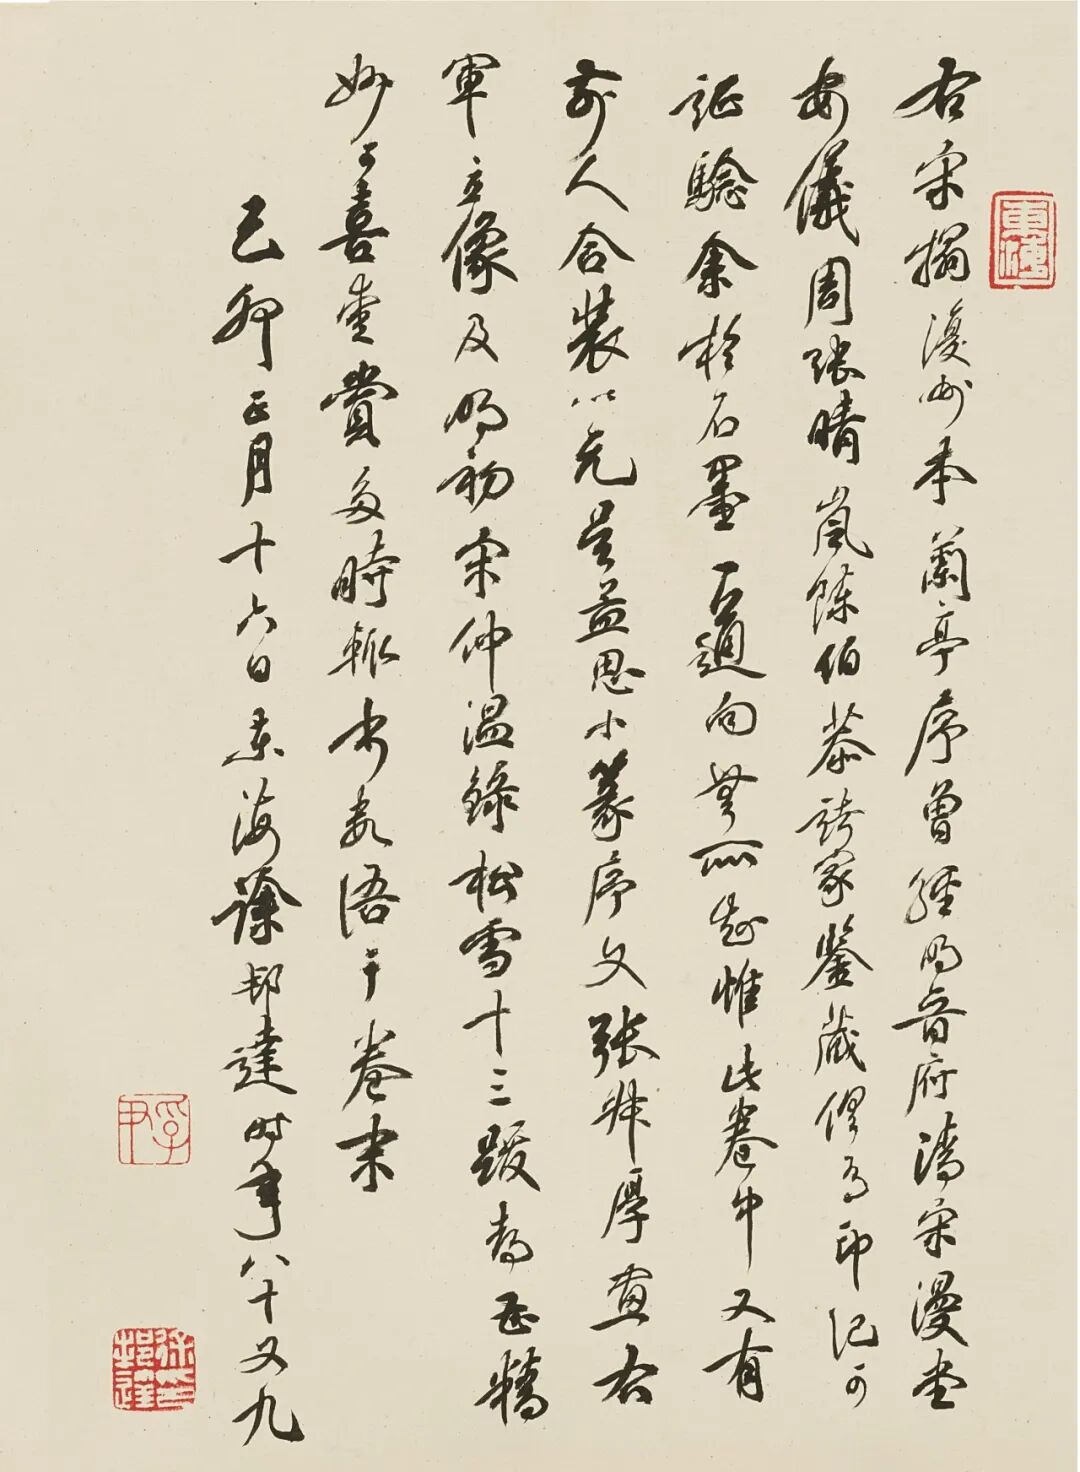 右宋搨復州本蘭亭序曾經明晉府清宋漫堂
安儀周張晴嵐陳伯恭諸家鑒藏俱有印記可
証驗余於石墨一道向無所知惟此卷中又有
前人合裝以元吳孟思小篆序文張叔厚畫右
軍立像及明初宋仲温錄松雪十三跋都甚精
妙可喜愛賞多時輒書數語于卷末
己卯正月十六日東海徐邦達時年八十又九
孚尹
徐邦達印